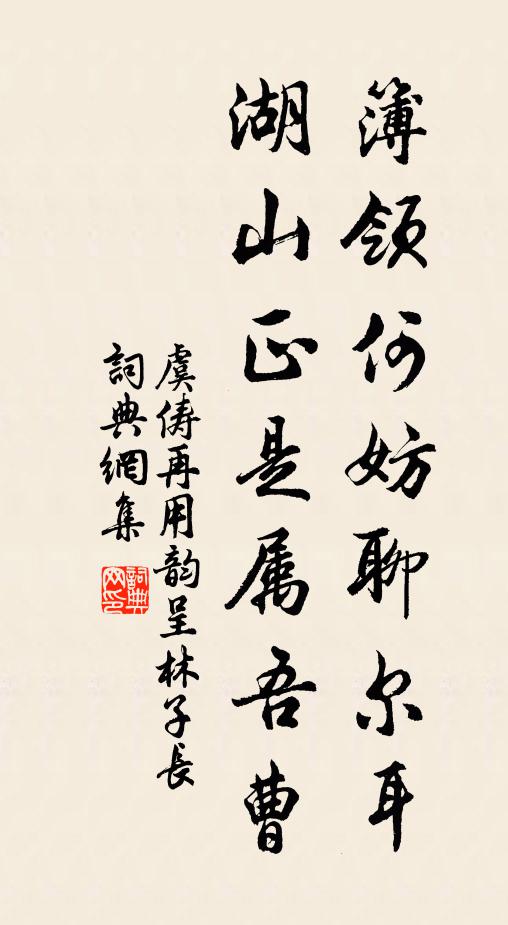 簿领何妨聊尔耳
湖山正是属吾曹
虞俦再用韵呈林子長
詞典網集
詞典网印